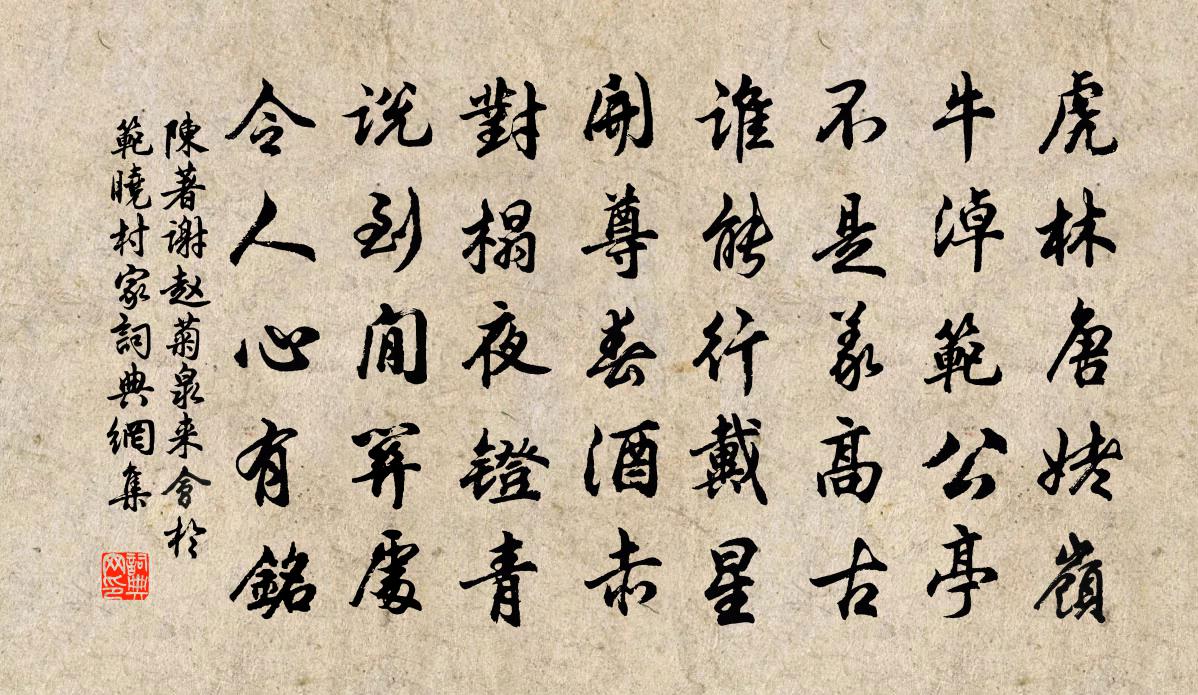 虎林唐姥嶺
牛淖範公亭
不是義高古
誰能行戴星
開尊春酒赤
對榻夜鐙青
說到間關處
令人心有銘
陳著謝赵菊泉来會於
範曉村家詞典網集
詞典
网印